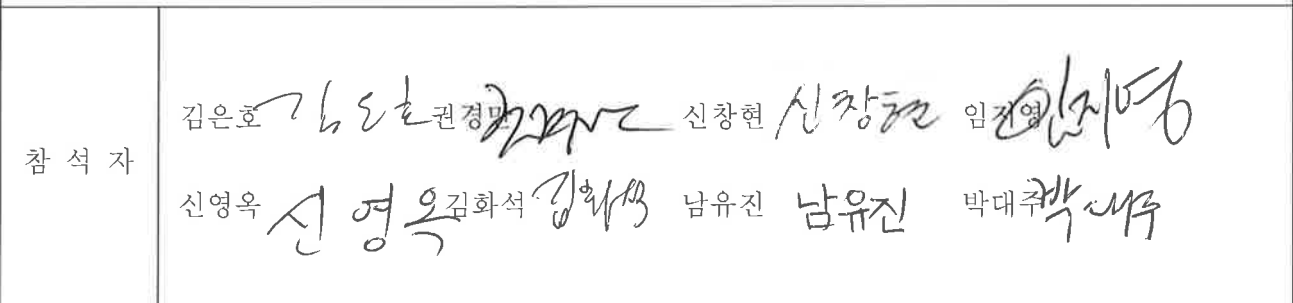 참 석 자
김은호 김은호 권경만 신창현 신창현 임지영 임지영
신영옥 신영옥 김화석 김화석 남유진 남유진 박대주 박대주